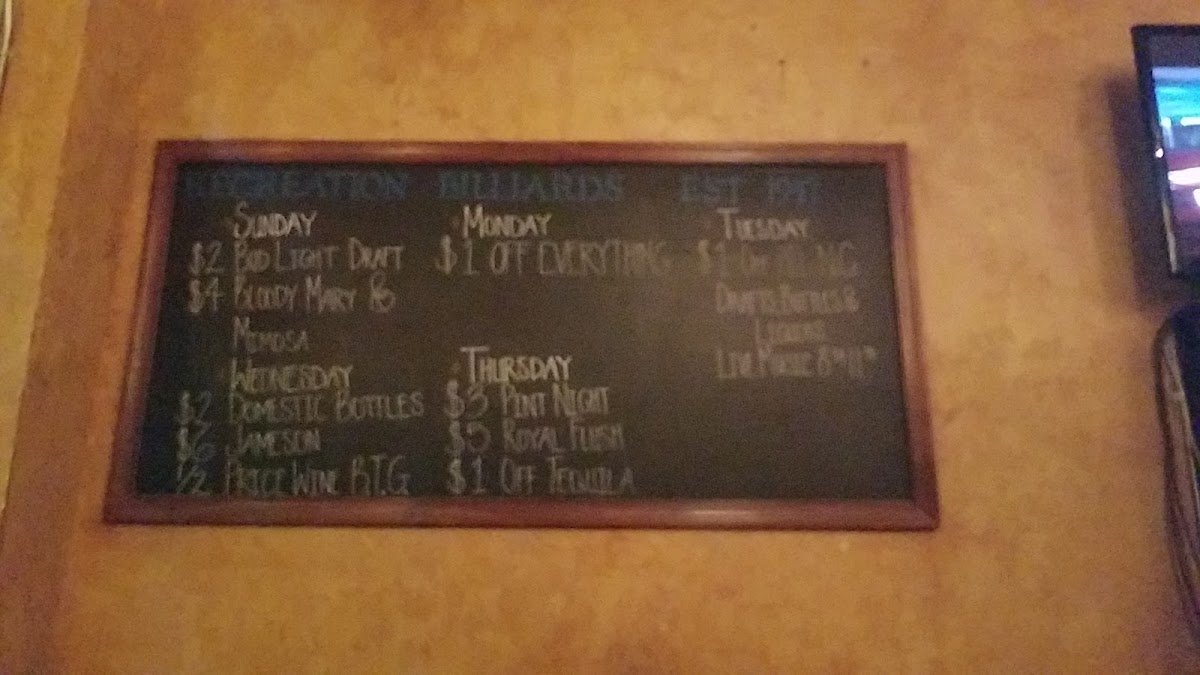 RECREATION BILLIARDS EST 1997
SUNDAY
$2 BUD LIGHT DRAFT
$4 BLOODY MARY &
MEMOSA
MONDAY
$1 OFF EVERYTHING
TUESDAY
$1 OFF ALL N.C.
DRAFTS BOTTLES &
LIQUORS
LIVE MUSIC 8
WEDNESDAY
$2 DOMESTIC BOTTLES
$6 JAMESON
1/2 PRICE WINE B.T.G
THURSDAY
$3 PINT NIGHT
$5 ROYAL FLUSH
$1 OFF TEQUILA